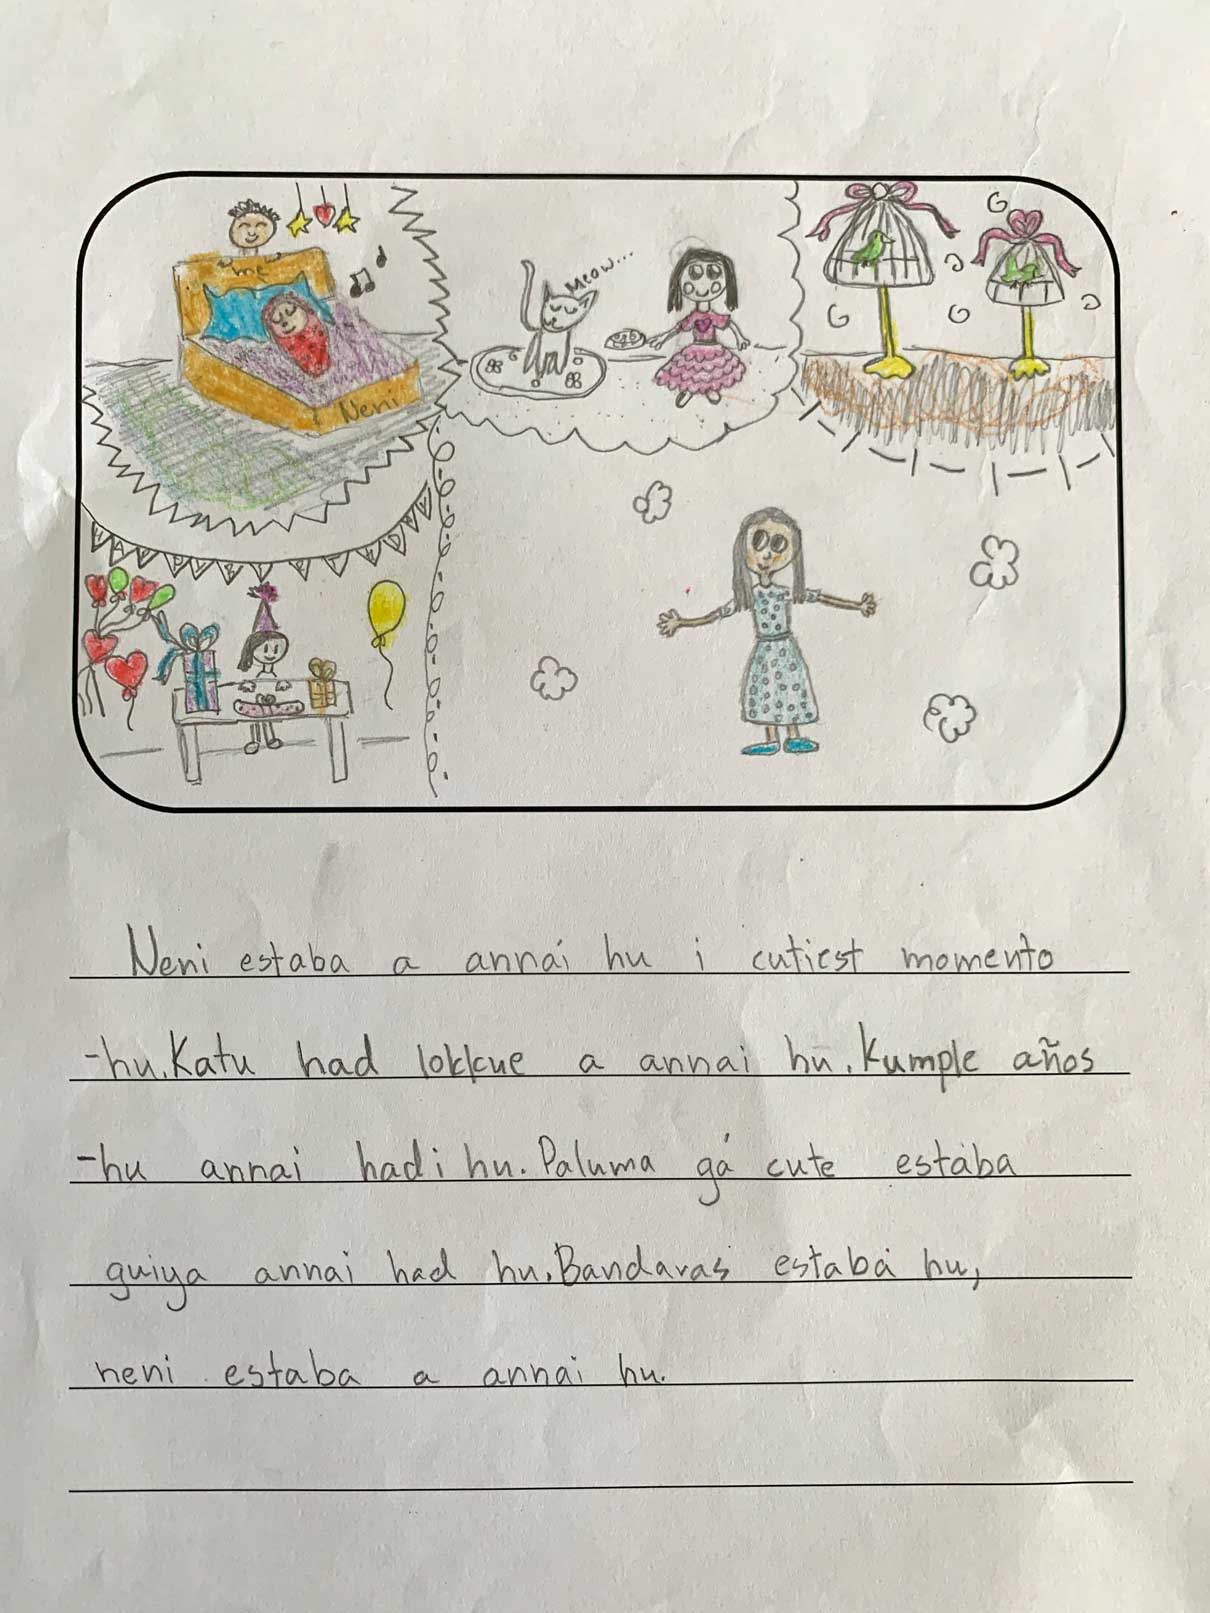 me
Neni
Meow...
HAPPY BIRTHDAY
Neni estaba a annai hu i cutiest momento
-hu. Katu had lokkue a annai hu. Kumple años
-hu annai hadi hu. Paluma gá cute estaba
guiya annai had hu. Bandaras estaba hu,
neni estaba a annai hu.